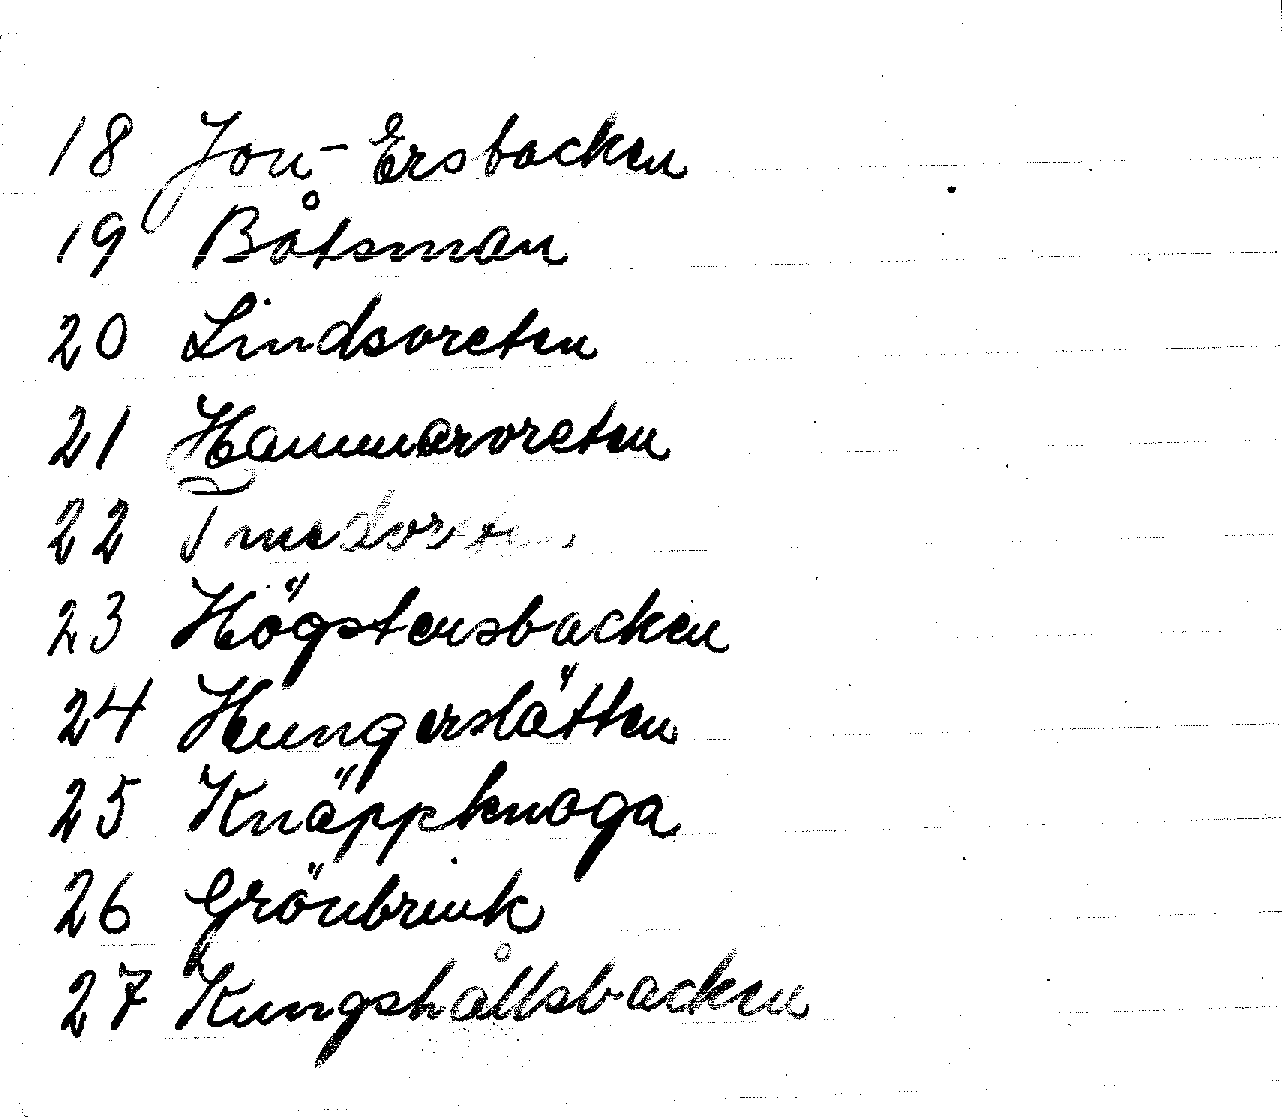 18 Jon-Ersbacken
19 Båtsman
20 Lindsvreten
21 Hammarvreten
22
23 Högstensbacken
24 Hungerslätten
25 Knäppknoga
26 Grönbrink
27 Kungshållsbacken